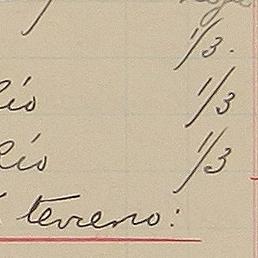 1/3.
lio 1/3
lio 1/3
terreno: